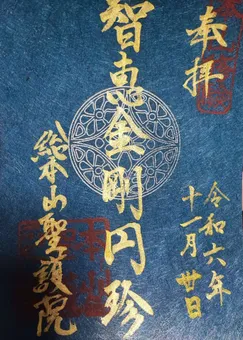 奉拝
令和六年
十一月廿日
智恵金剛円珍
総本山聖護院